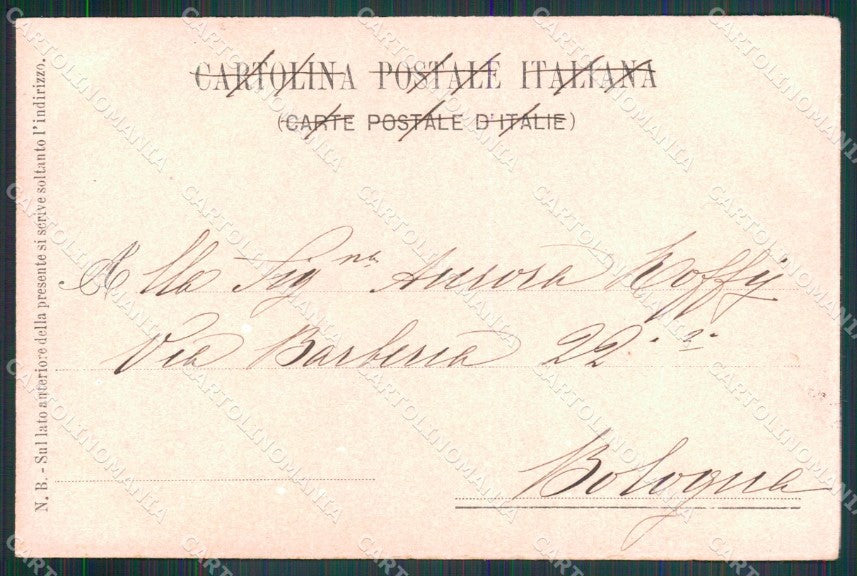 CARTOLINA POSTALE ITALIANA
(CARTE POSTALE D'ITALIE)
N. B. - Sul lato anteriore della presente si scrive soltanto l'indirizzo.
Alla Sig.na Aurora
Via Barberia 22
Bologna
CARTOLINOMANIA